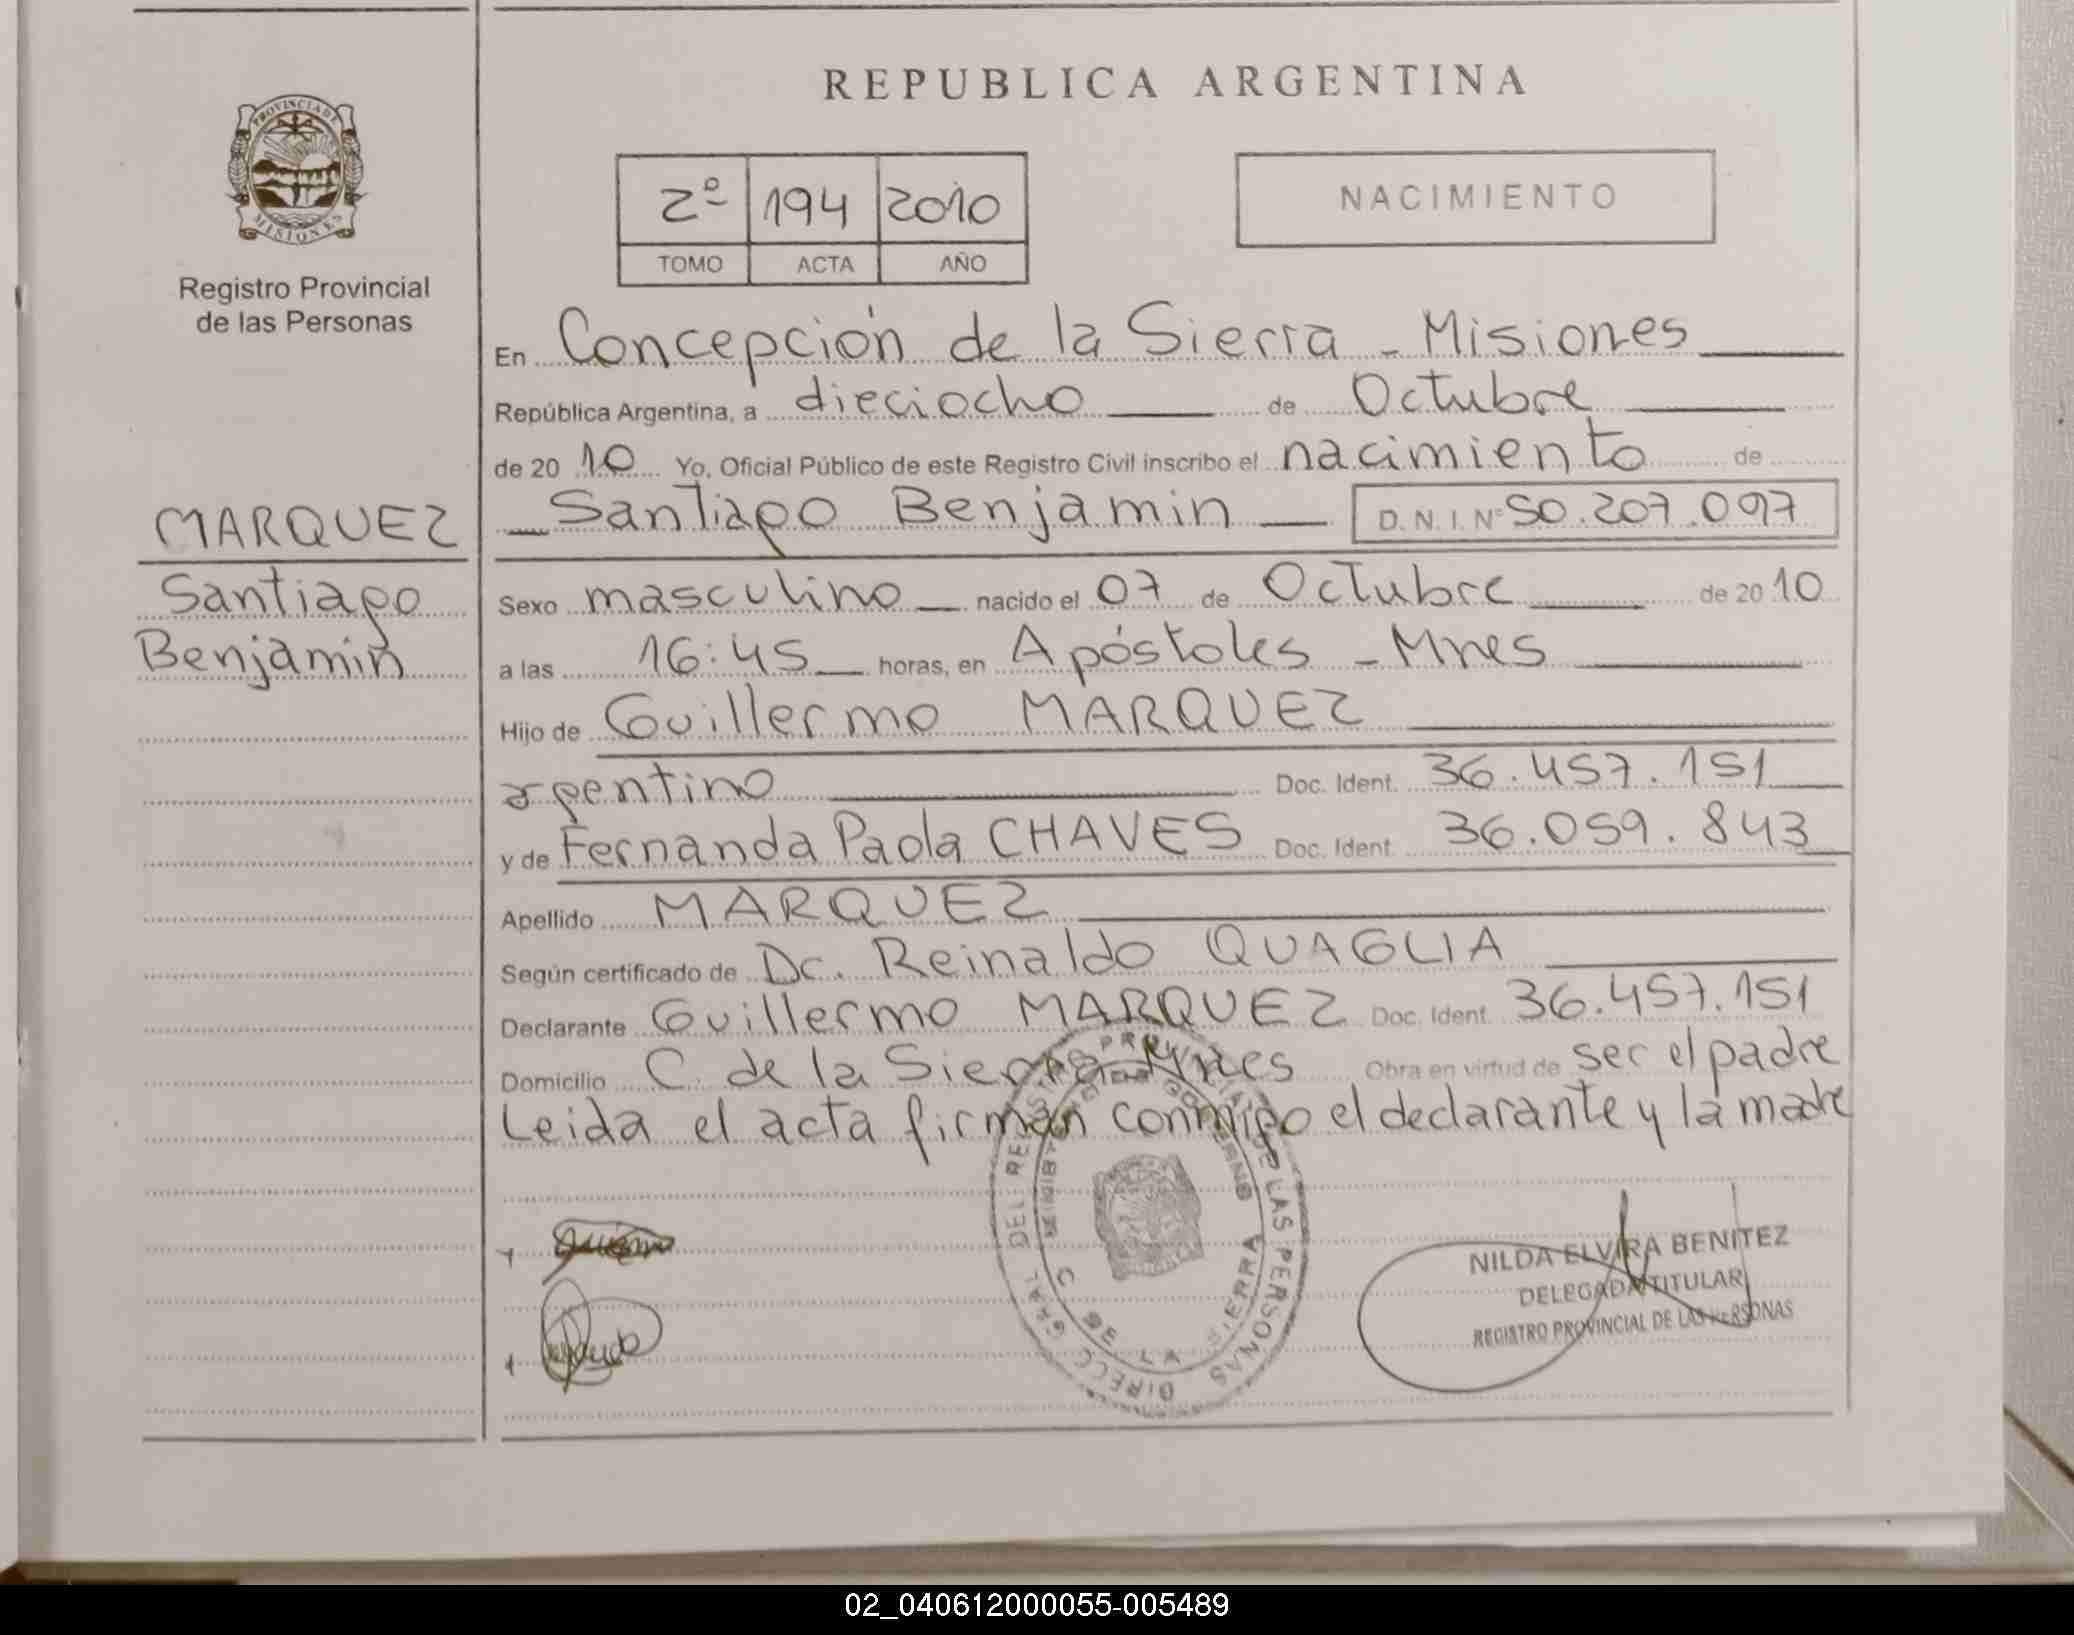 REPUBLICA ARGENTINA
PROVINCIA DE
MISIONES
Registro Provincial
de las Personas
2º 194 2010
TOMO ACTA AÑO
NACIMIENTO
En Concepción de la Sierra - Misiones
República Argentina, a dieciocho de Octubre
de 20 10 Yo, Oficial Público de este Registro Civil inscribo el nacimiento de
Santiago Benjamin D. N. I. Nº 50.207.097
MARQUEZ
Santiago
Benjamin
Sexo masculino nacido el 07 de Octubre de 20 10
a las 16:45 horas, en Apóstoles - Mnes
Hijo de Guillermo MARQUEZ
argentino Doc. Ident. 36.457.151
y de Fernanda Paola CHAVES Doc. Ident. 36.059.843
Apellido MARQUEZ
Según certificado de Dr. Reinaldo QUAGLIA
Declarante Guillermo MARQUEZ Doc. Ident. 36.457.151
Domicilio C. de la Sierra Mnes Obra en virtud de ser el padre
Leida el acta firman conmigo el declarante y la madre
DIRECC GRAL DEL REGISTRO PROVINCIAL DE LAS PERSONAS
C DE LA SIERRA
NILDA ELVIRA BENITEZ
DELEGADA TITULAR
REGISTRO PROVINCIAL DE LAS PERSONAS
02_040612000055-005489